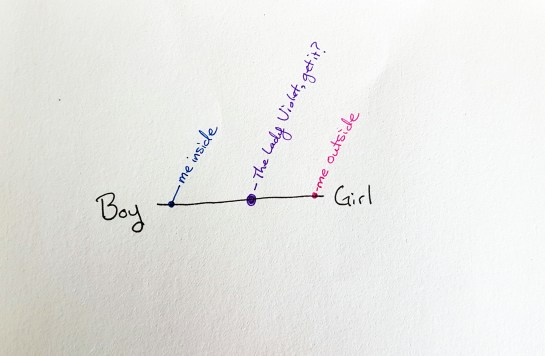 me inside
The Lady Violet, get it?
me outside
Boy
Girl